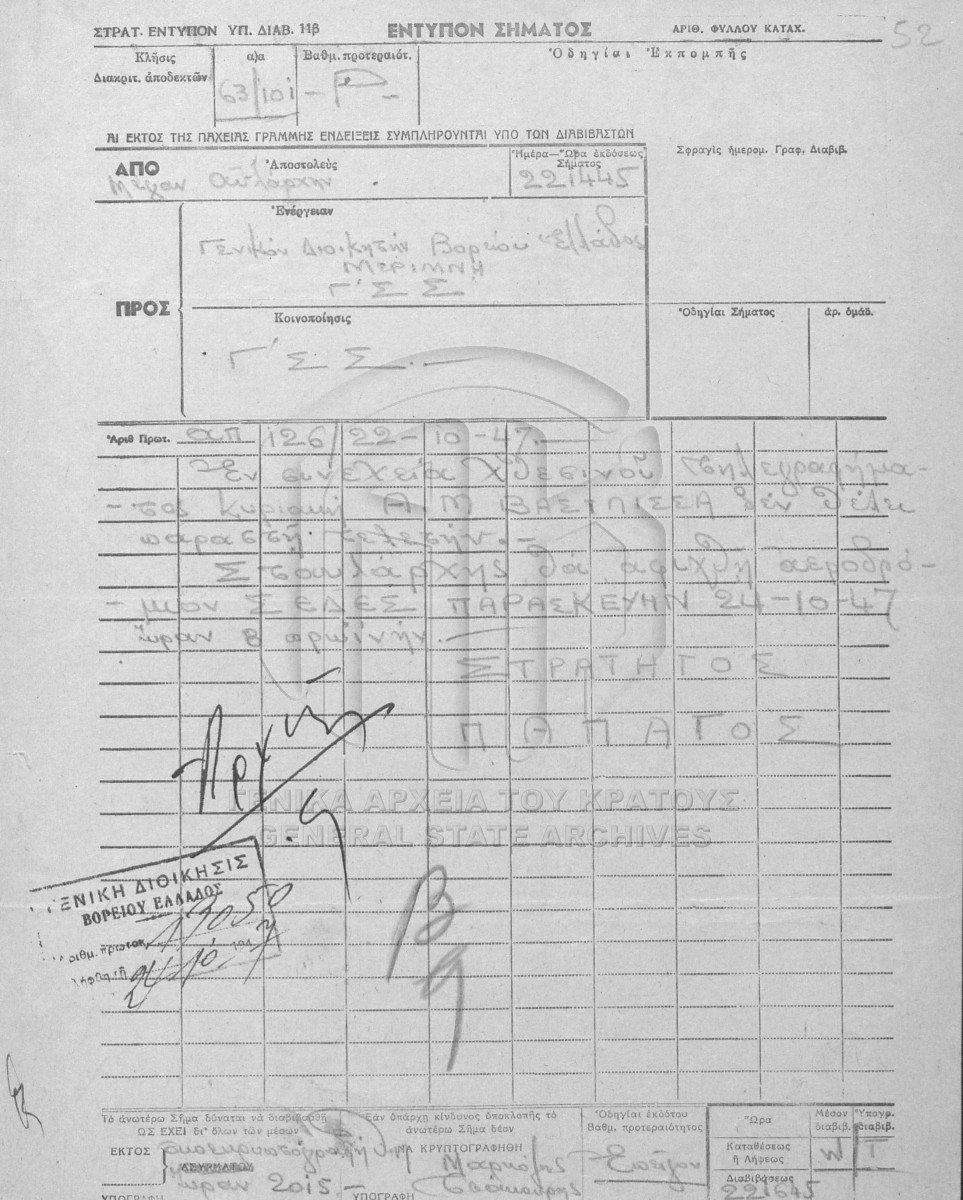 ΣΤΡΑΤ. ΕΝΤΥΠΟΝ ΥΠ. ΔΙΑΒ. 11β ΕΝΤΥΠΟΝ ΣΗΜΑΤΟΣ ΑΡΙΘ. ΦΥΛΛΟΥ ΚΑΤΑΧ. 52
Κλῆσις
Διακριτ. ἀποδεκτῶν
α)α
63/101
Βαθμ. προτεραιότ.
Ὁδηγίαι Ἐκπομπῆς
ΑΙ ΕΚΤΟΣ ΤΗΣ ΠΑΧΕΙΑΣ ΓΡΑΜΜΗΣ ΕΝΔΕΙΞΕΙΣ ΣΥΜΠΛΗΡΟΥΝΤΑΙ ΥΠΟ ΤΩΝ ΔΙΑΒΙΒΑΣΤΩΝ
ΑΠΟ Ἀποστολεὺς
Μεγαν Αὐλάρχην
Ἡμέρα—Ὥρα ἐκδόσεως
Σήματος
221445
Σφραγὶς ἡμερομ. Γραφ. Διαβιβ.
ΠΡΟΣ
Ἐνέργειαν
Γενικὸν Διοικητὴν Βορείου Ἑλλάδος
ΜΕΡΙΜΝΗ
Γ΄ Σ Σ
Κοινοποίησις
Γ΄ Σ Σ.—
Ὁδηγίαι Σήματος ἀρ. ὁμάδ.
Ἀριθ Πρωτ. απ 126/22-10-47.—
Ἐν συνεχεία χθεσινοῦ τηλεγραφήμα-
-τος Κυριακὴ Α.Μ ΒΑΣΙΛΙΣΣΑ δὲν θέλει
παραστῆ τελετήν.—
Σταυλάρχης θὰ ἀφιχθῆ ἀεροδρό-
-μιον ΣΕΔΕΣ ΠΑΡΑΣΚΕΥΗΝ 24-10-47
ὥραν 8 πρωϊνήν.—
ΣΤΡΑΤΗΓΟΣ
ΠΑΠΑΓΟΣ
ΓΕΝΙΚΑ ΑΡΧΕΙΑ ΤΟΥ ΚΡΑΤΟΥΣ
GENERAL STATE ARCHIVES
ΓΕΝΙΚΗ ΔΙΟΙΚΗΣΙΣ
ΒΟΡΕΙΟΥ ΕΛΛΑΔΟΣ
ἀριθμ. πρωτοκ.
Τὸ ἀνωτέρω Σῆμα δύναται νὰ διαβιβασθῇ
ΩΣ ΕΧΕΙ δι' ὅλων τῶν μέσων
ΕΚΤΟΣ
ΑΣΥΡΜΑΤΟΥ
ὥραν 2015.—
ΥΠΟΓΡΑΦΗ
Ἐὰν ὑπάρχῃ κίνδυνος ὑποκλοπῆς τὸ
ἀνωτέρω Σῆμα δέον
ΝΑ ΚΡΥΠΤΟΓΡΑΦΗΘΗ
ΥΠΟΓΡΑΦΗ
Ὁδηγίαι ἐκδότου
Βαθμ. προτεραιότητος
Ἐπεῖγον
Ὥρα
Καταθέσεως
ἢ Λήψεως
Διαβιβάσεως
221645
Μέσον
διαβιβ.
W
Ὑπογρ.
διαβιβ.
T